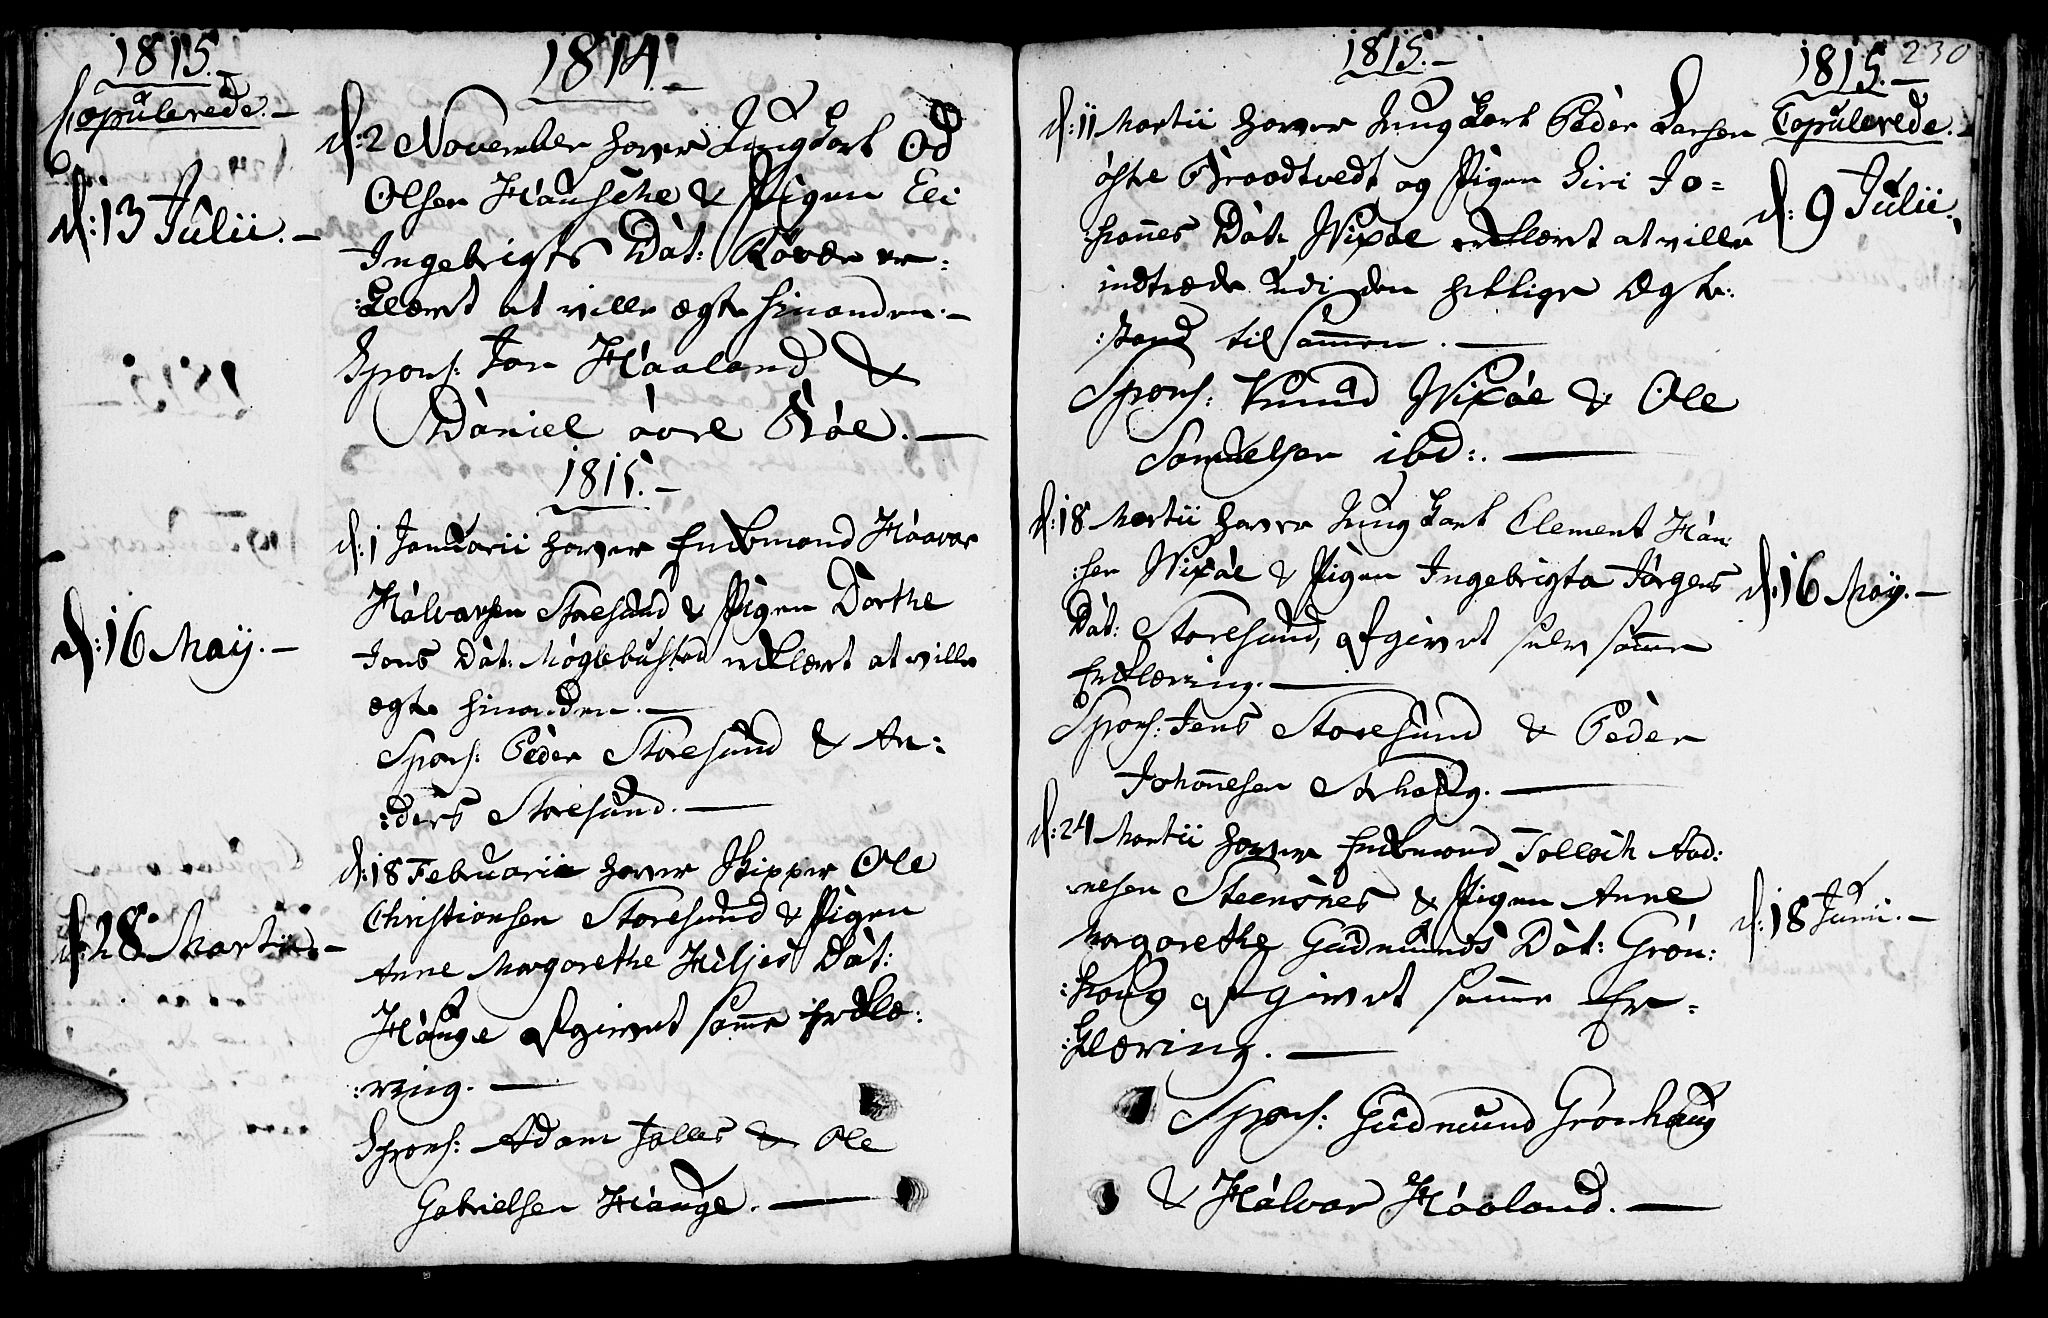 1815.
Copulerede.
d: 13 Julii.
d: 16 Maij.
d: 28 Martii.
1814.
d: 2 November haver Ungkarl Od
Olsen Hausche & Pigen Eli
Ingebrigts Dat: Röver er=
:klæret at ville ægte hinanden.
Spons: Jon Haaland &
Daniel övre Röe.
1815.
d: 1 Januarii haver Enkemand Haavar
Halvarsen Storesund & Pigen Dorthe
Jons Dat: Möglebustad erklæret at ville
ægte hinanden.
Spons: Peder Storesund & An:
:ders Storesund.
d: 18 Februarii haver Skipper Ole
Christiansen Storesund & Pigen
Anne Margarethe Kiljes Dat:
Hauge afgivet samme Erklæ:
:ring.
Spons: Adam Jalles & Ole
Gabrielsen Hauge.
1815.
d: 11 Martii haver Ungkarl Peder Larsen
östre Braadtvedt og Pigen Siri Jo=
hannes Dat: Vixöe erklæret at ville
indtræde udi den hellige Ægte:
:stand tilsammen.
Spons: Knud Vixöe & Ole
Samuelsen ibd:.
d: 18 Martii haver Ungkarl Clement Han:
:sen Vixöe & Pigen Ingebrigta Jörgens
Dat: Storesund, afgivet selv samme
Erklæring.
Spons: Jens Storesund & Peder
Johannesen Storhoug.
d: 24 Martii haver Enkemand Tollech Aad:
:nesen Steensnes & Pigen Anne
Margarethe Gudmunds Dat: Grön:
:houg afgivet samme Er=
:klæring.
Spons: Gudmund Grönhaug
& Halvar Haaland.
230
1815.
Copulerede.
d: 9 Julii.
d: 16 Maij.
d: 18 Junii.